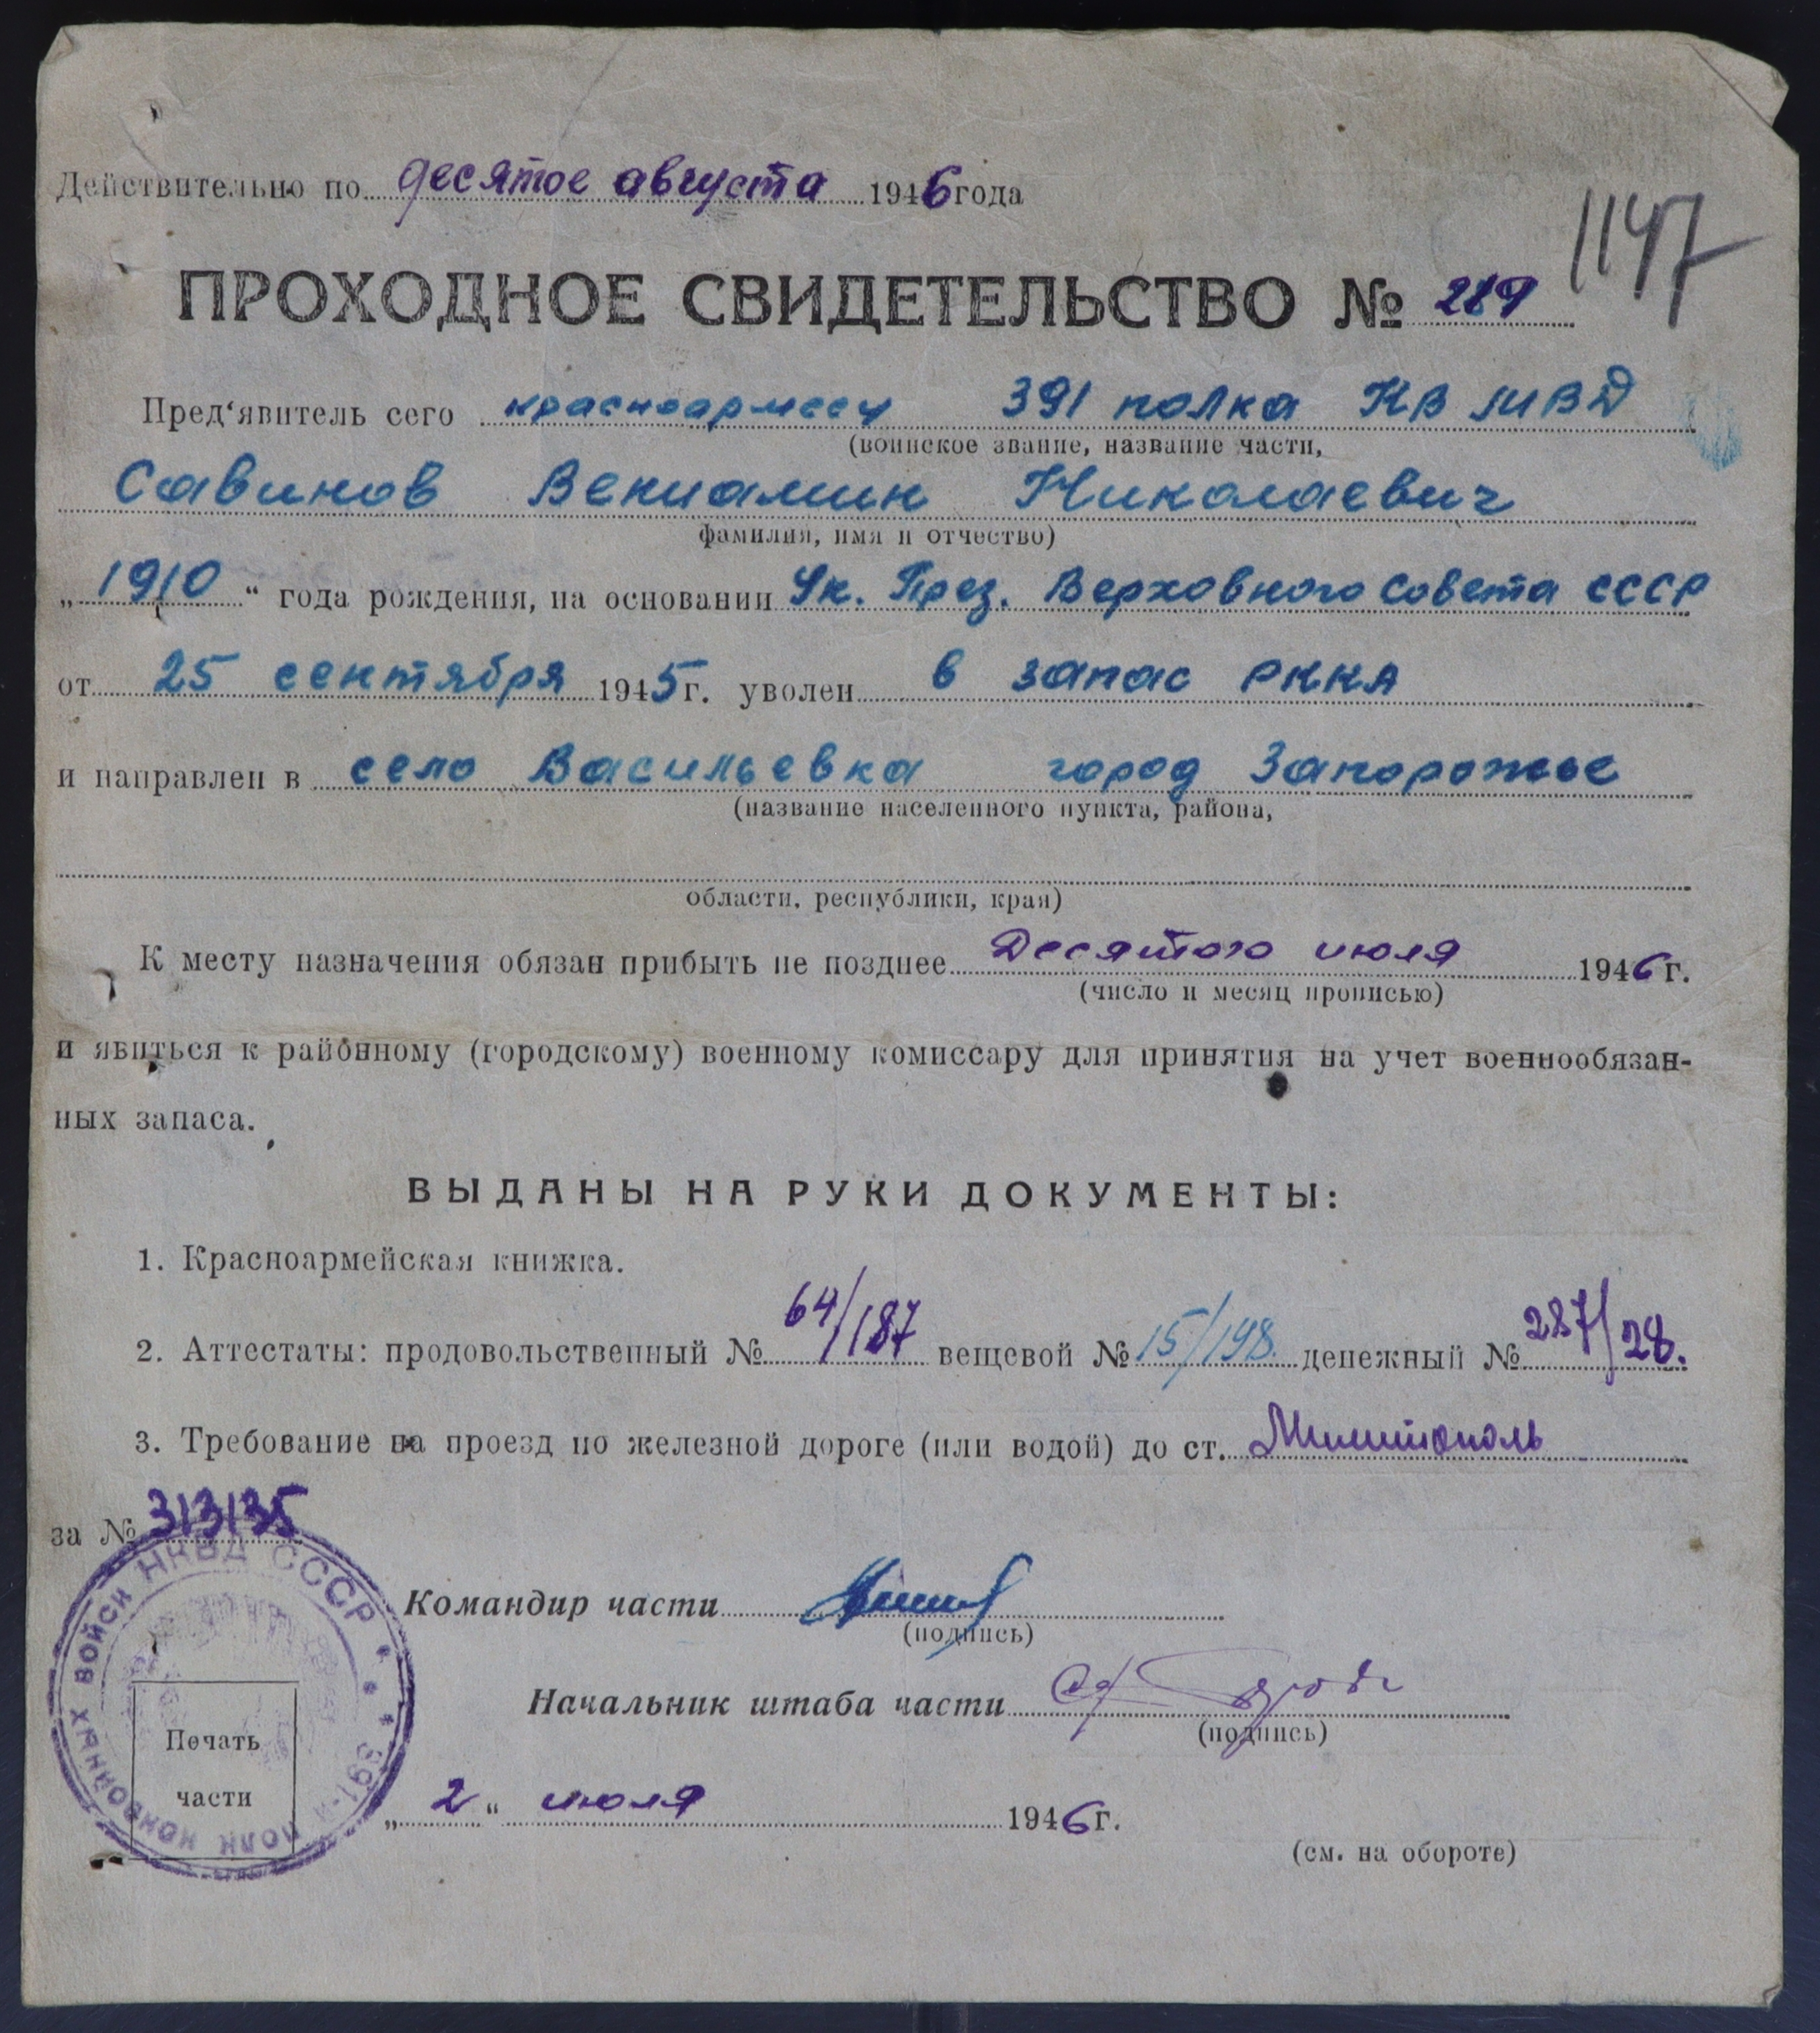 Действительно по десятое августа 1946 года
1147
ПРОХОДНОЕ СВИДЕТЕЛЬСТВО № 289
Пред‘явитель сего красноармеец 391 полка КВ МВД
(воинское звание, название части,
Савинов Вениамин Николаевич
фамилия, имя и отчество)
„1910“ года рождения, на основании Ук. През. Верховного Совета СССР
от 25 сентября 1945 г. уволен в запас РККА
и направлен в село Васильевка город Запорожье
(название населенного пункта, района,
области, республики, края)
К месту назначения обязан прибыть не позднее Десятого июля 1946 г.
(число и месяц прописью)
и явиться к районному (городскому) военному комиссару для принятия на учет военнообязан-
ных запаса.
ВЫДАНЫ НА РУКИ ДОКУМЕНТЫ:
1. Красноармейская книжка.
2. Аттестаты: продовольственный № 64/187 вещевой № 15/198. денежный № 287/28.
3. Требование на проезд по железной дороге (или водой) до ст. Милитополь
за № 313135
Командир части
(подпись)
Начальник штаба части
(подпись)
391-й полк конвойных войск НКВД СССР
Печать
части
„2“ июля 1946 г.
(см. на обороте)